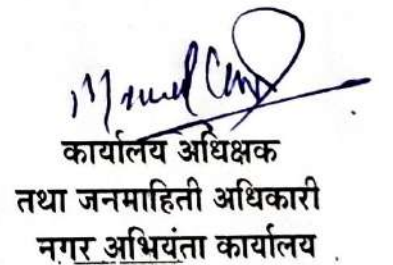 कार्यालय अधिक्षक
तथा जनमाहिती अधिकारी
नगर अभियंता कार्यालय